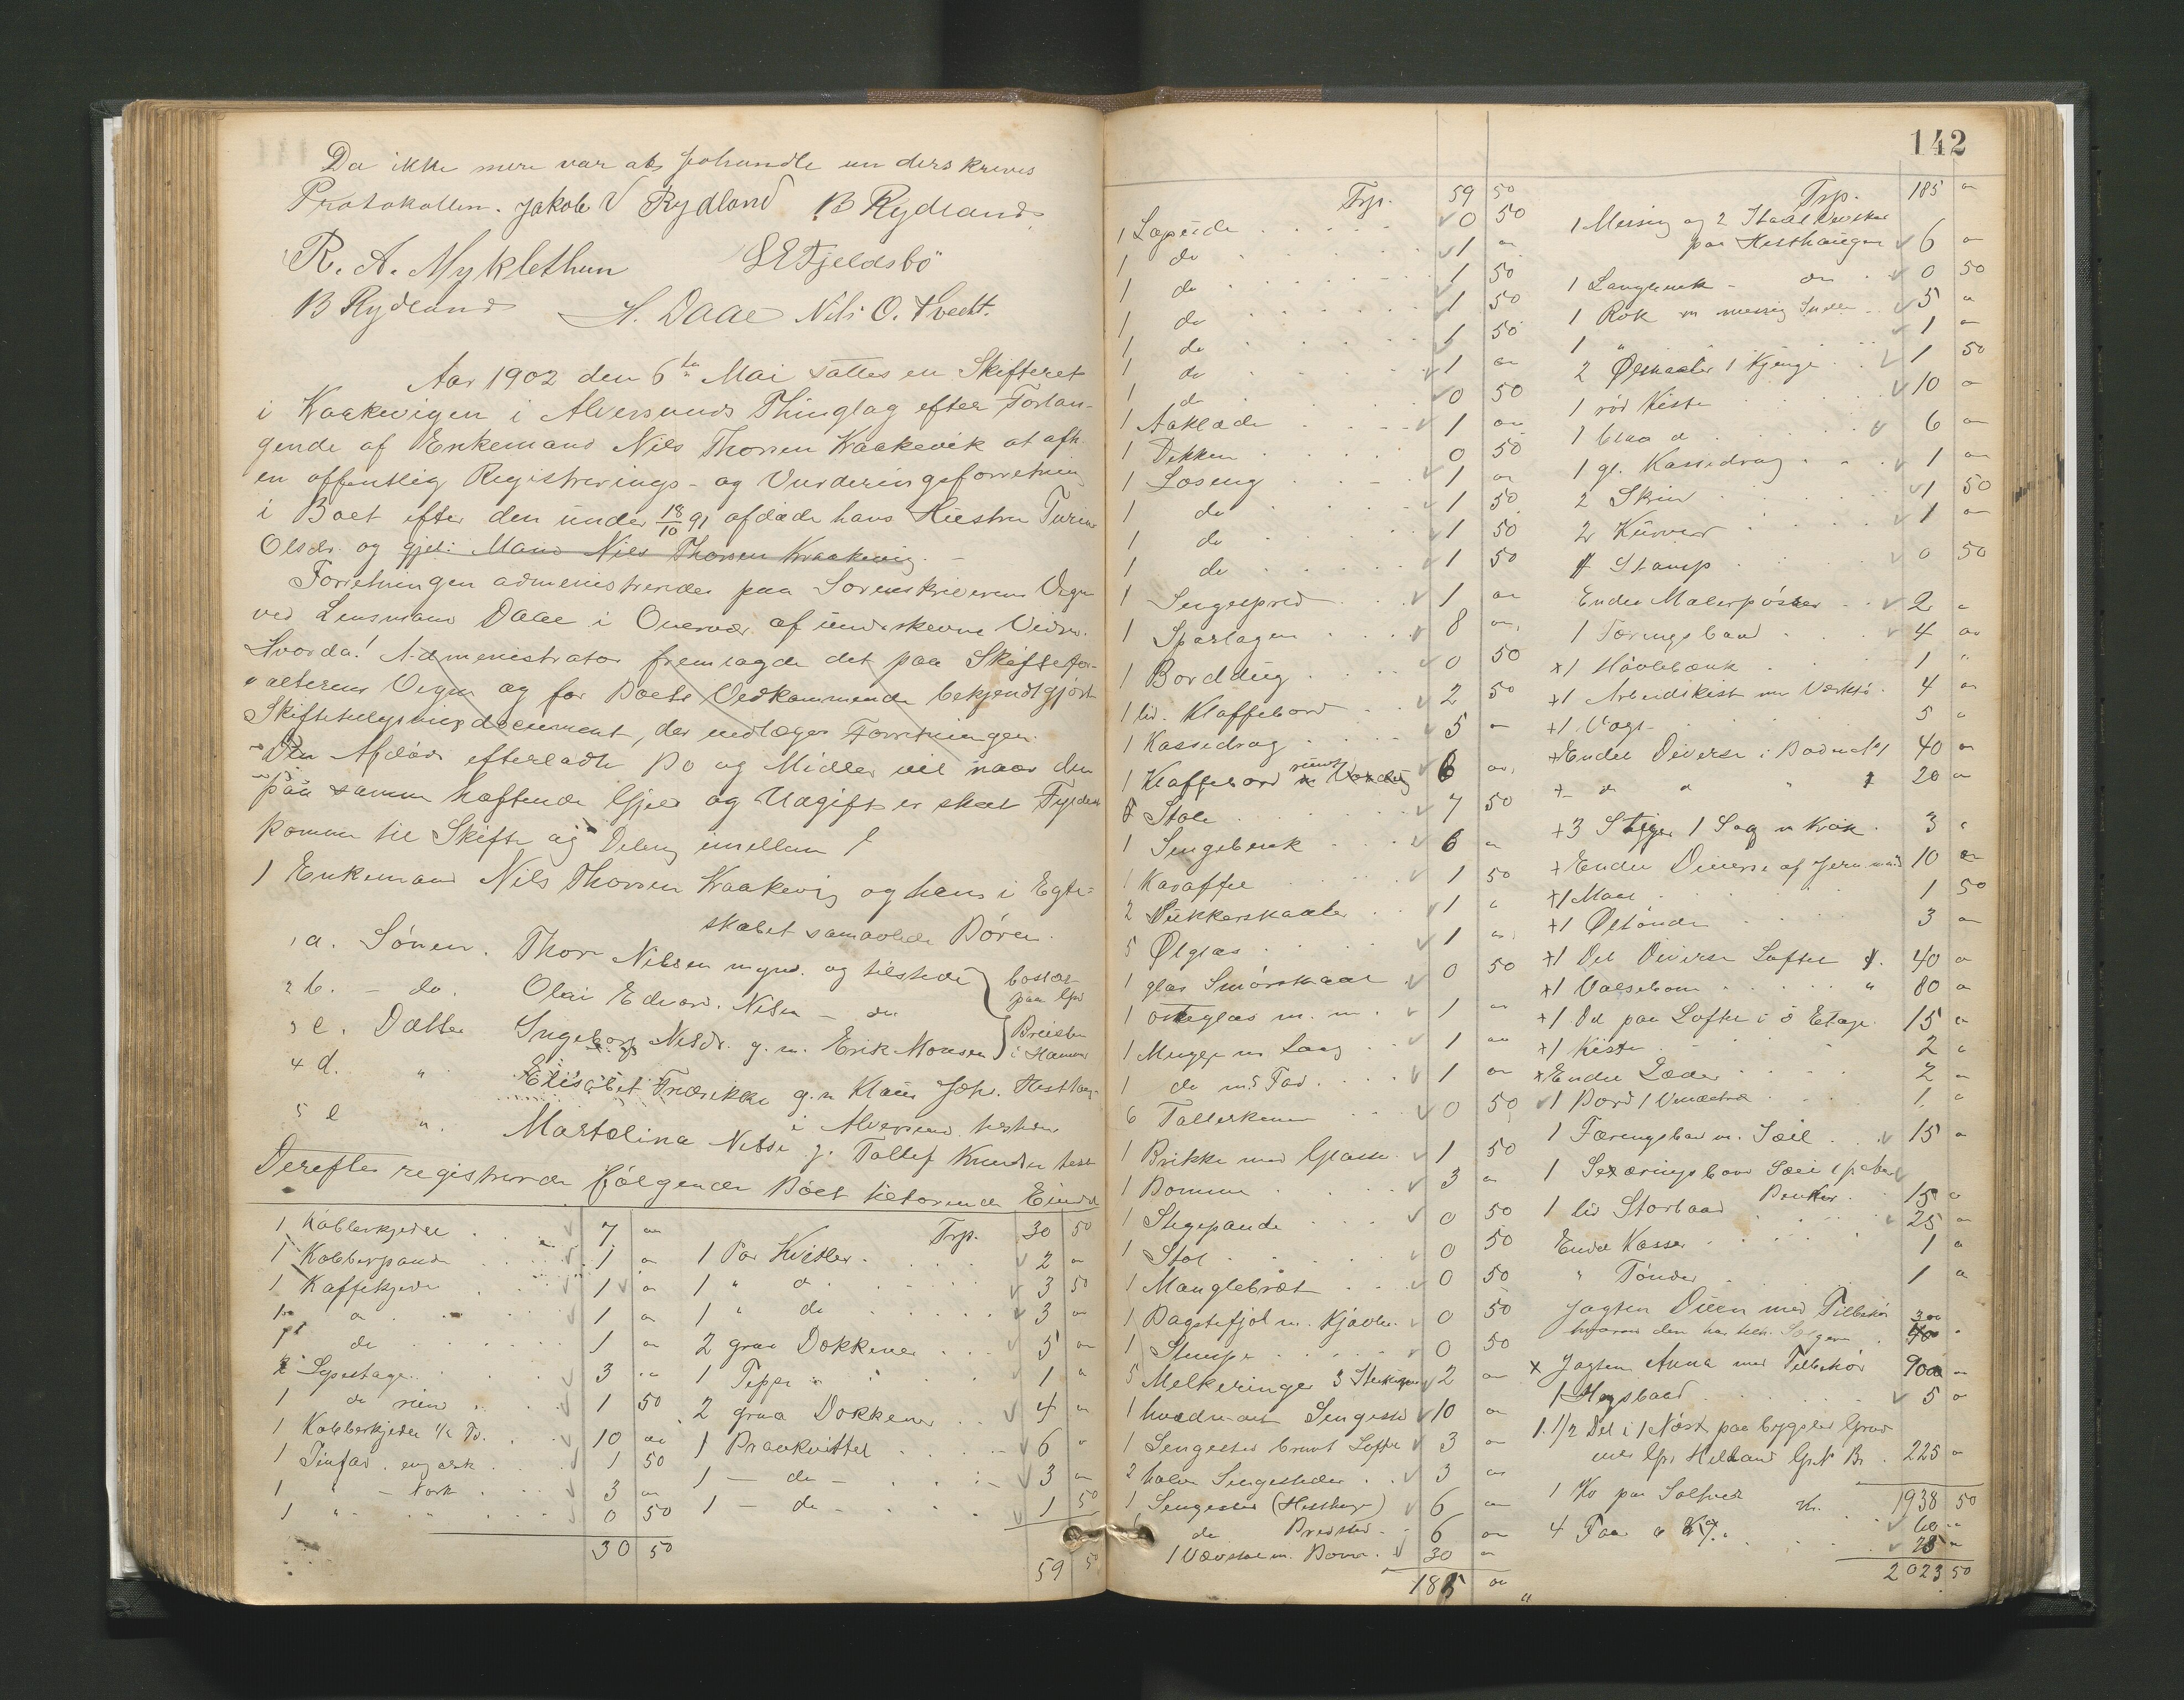 Da ikke mere var at forhandle underskreves
Protokollen. Jakob V Rydland B Rydland
R. A. Myklethun L E Fjeldsbö
B Rydland H. Daae Nils O. Tvedt.
Aar 1902 den 6te Mai sattes en Skifteret
i Kraakevigen i Alversunds Thinglag efter Forlan-
gende af Enkemand Nils Thorsen Kraakevik at afh.
en offentlig Registrerings- og Vurderingsforretning
i Boet efter den under 18/10 91 afdøde hans Hustru Turine
Olsdr. og gjel: Mand Nils Thorsen Kraakevig.
Forretningen administreredes paa Sorenskriverens Vegne
ved Lensmand Daae i Overvær af underskrevne Vidner.
Hvorda! Administrator fremlagde det paa Skiftefor-
valterens Vegne og for Boets Vedkommende bekjendtgjort
Skiftetilsynings document, der vedlægges Forretningen.
Den Afdødes efterladte Bo og Midler vil naar den
paa samme heftende Gjæld og Udgift er skeet Fyldest
komme til Skifte og Deling imellem
1 Enkemand Nils Thorsen Kraakevig og hans i Egte-
skabet samavlede Børn.
1 a. Sønnen. Thor Nilsen mynd. og tilstede
2 b. - do. Olai Edvard Nilsen - do
bosat paa Grd
3 c. Datter Ingeborg Nilsdr. g. m. Erik Monsen
Breisten i Hammer
4 d. " Elisabet Fredrikke g. m Klaus Johs. Hesthaug
i Alversund
5 e ". Martolina Nilsd g. Tollef Knudsen
Derefter registreredes følgende Boet tilhørende Eiend
1 Kobberkjedel 7 "
1 Kobberpande 1 "
1 Kaffekjedel 1 "
1 do 1 "
1 do 1 "
2 Lysestager 3 "
1 do 1 50
1 Kobberkjedel 1/2 Td. 10 "
1 Tinfad engelsk 1 50
1 " - Norsk 3 "
1 " 0 50
30 50
Trsp. 30 50
1 Par Kvitler 2 "
1 " do 3 50
1 " do 3 "
2 graa Dækkener 5 "
1 Teppe 1 "
2 graa Dækkener 4 "
1 Braakvittel 6 "
1 - do - 3 "
1 - do - 1 50
59 50
142
Trsp. 59 50
1 Lagede 0 50
1 do 1 "
1 do 1 50
1 do 1 50
1 do 1 50
1 do 1 "
1 do 0 50
1 Aaklæde 1 "
1 Dekken 0 50
1 Loseng 1 "
1 do 1 50
1 do 1 50
1 do 1 50
1 Sengespred 1 "
1 Sparlagen 8 "
1 Borddug 0 50
1 lid. Klaffebord 2 50
1 Kassedrag 5 "
1 Klaffebord 6 "
8 Stole 7 50
1 Sengebenk 6 "
1 Karaffel 1 50
2 Sukkerskaaler 1 "
5 Ølglas 1 "
1 glas Smørskaal 0 50
1 Osteglas m. m. 1 "
1 Mugge m Laag 1 "
1 do med Fad 1 "
6 Tallerkener 0 50
1 Brikke med Glasse 1 50
1 Bomme 3 "
1 Stegepande 0 50
1 Stol 0 50
1 Manglebræt 0 50
1 Bagstefjøl m. Kjævle 0 50
1 Stampe 0 50
5 Melkeringer 3 2 "
1 Sengested 10 "
1 Sengested brunt Lofte 3 "
2 halve Sengesteder 3 "
1 Sengested (Hesthaugen) 6 "
1 do Bredsted 6 "
1 Vævstol m. Bom 30 "
185 "
Trsp. 185 "
1 Messing og 2 Staal
paa Hesthaugen 6 "
1 Langbenk - do 0 50
1 Rok m messing 5 "
1 " 1 "
2 Ølskaaler 1 Kjenge 1 50
1 rød Kiste 10 "
1 blaa d 6 "
1 gl. Kassedrag 1 "
2 Skrin 1 50
2 Kurver 1 "
1 Stamp 0 50
Endel Malerpøser 2 "
1 Færingsbaad 4 "
+1 Høvlebænk 1 "
+1 Arbeidskiste m Værktø. 4 "
+1 Vægt 5 "
+Endel Diverse i Boden No 1 40 "
+ - d d " 20 "
+3 Stiger 1 Sag m Krok 3 "
+Endel Diverse af Jern 10 "
+1 Maal 1 50
+1 Øltønde 3 "
+1 Del Diverse Loftet 40 "
+1 " 80 "
+1 Del paa Loftet i 3 Etage 15 "
+1 Kiste 2 "
+Endel Læder 2 "
1 Bord 1 1 "
1 Færingsbaad m. Seil 15 "
1 Sexæringsbaad Seil
15 "
1 lid Storbaad 25 "
Endel Kasser 1 "
" Tønder 1 "
Jagten Duen med Tilbehør
hvoraf den har 300
x Jagten Anna med Tilbehør 900 "
1 5 "
1 1/2 Del i 1 Nøst paa bygslet Grund
225 "
Kr. 1938 50
1 Ko paa 60 "
4 Faar 25 "
2023 50